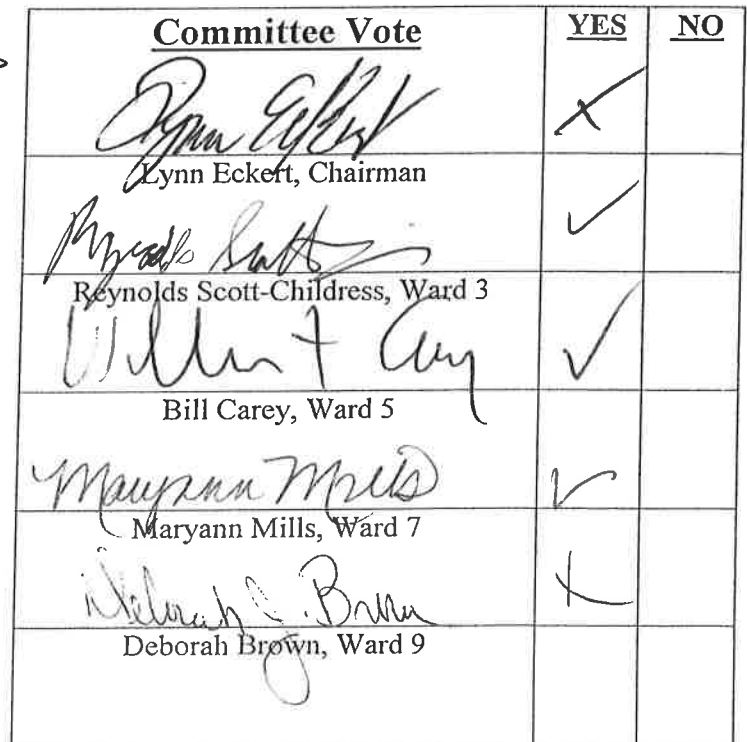 Committee Vote YES NO
Lynn Eckert
Lynn Eckert, Chairman
Reynolds Scott-
Reynolds Scott-Childress, Ward 3
William F Carey
Bill Carey, Ward 5
Maryann Mills
Maryann Mills, Ward 7
Deborah J. Brown
Deborah Brown, Ward 9